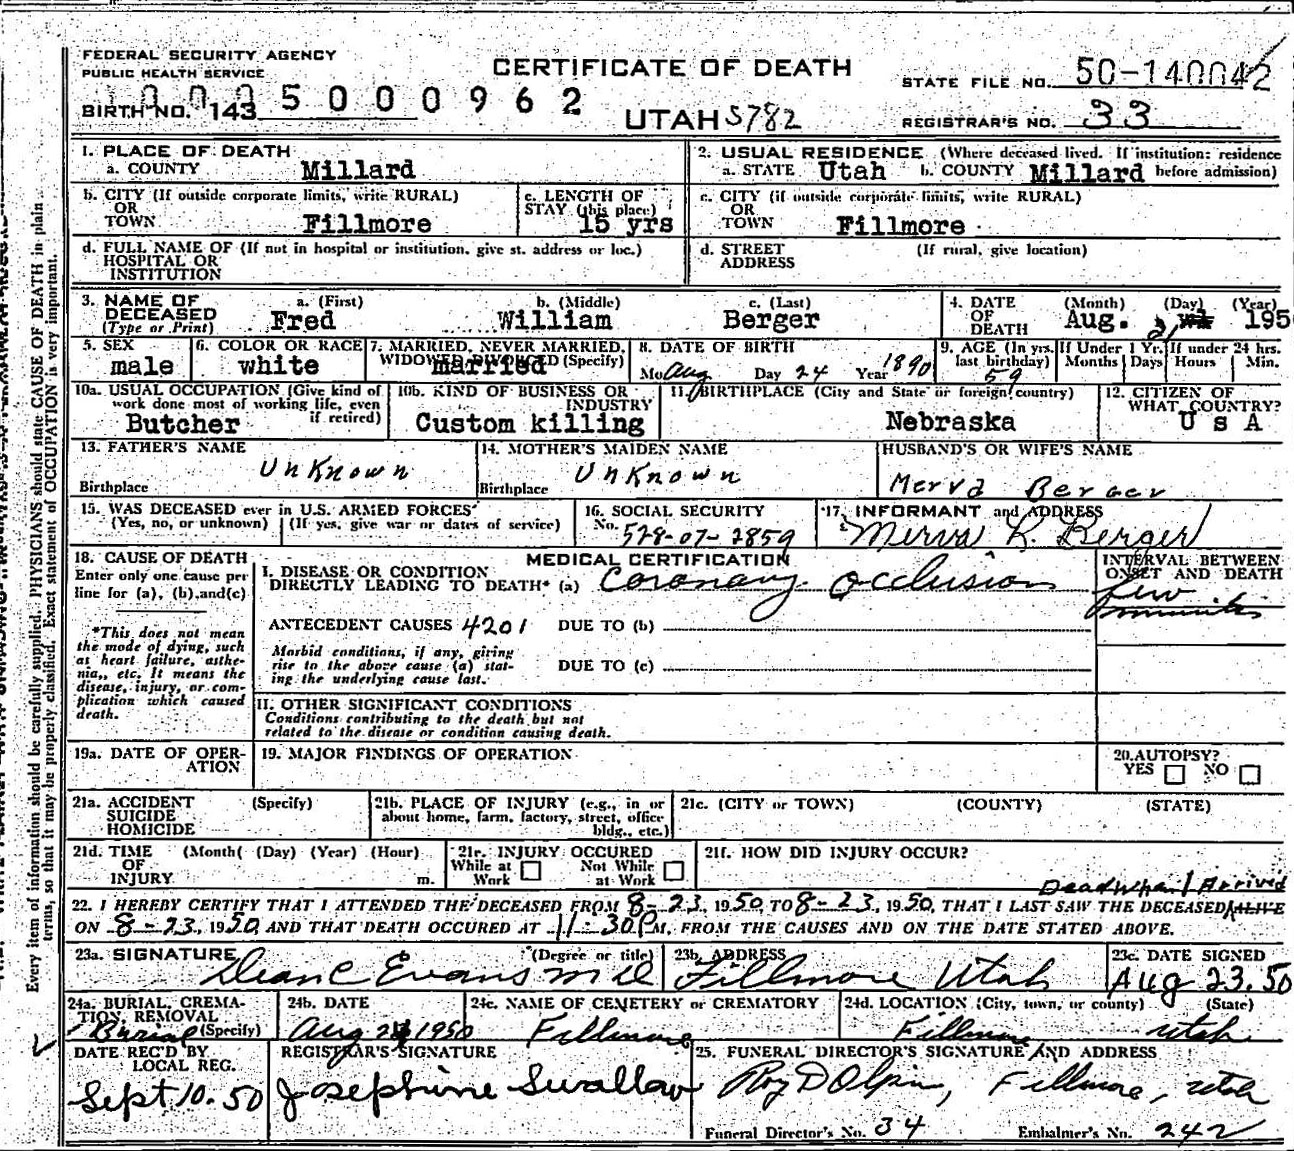 FEDERAL SECURITY AGENCY
PUBLIC HEALTH SERVICE
CERTIFICATE OF DEATH
STATE FILE NO. 50-140042
BIRTH NO. 143
0005000962
UTAH 5782
REGISTRAR'S NO. 33
1. PLACE OF DEATH
a. COUNTY Millard
2. USUAL RESIDENCE (Where deceased lived. If institution: residence before admission)
a. STATE Utah b. COUNTY Millard
b. CITY (If outside corporate limits, write RURAL)
OR
TOWN Fillmore
c. LENGTH OF
STAY (this place)
15 yrs
c. CITY (if outside corporate limits, write RURAL)
OR
TOWN Fillmore
d. FULL NAME OF (If not in hospital or institution, give st. address or loc.)
HOSPITAL OR
INSTITUTION
d. STREET (If rural, give location)
ADDRESS
3. NAME OF
DECEASED
(Type or Print)
a. (First)
Fred
b. (Middle)
William
c. (Last)
Berger
4. DATE
OF
DEATH
(Month) (Day) (Year)
Aug. 195
5. SEX
male
6. COLOR OR RACE
white
7. MARRIED, NEVER MARRIED,
WIDOWED, DIVORCED (Specify)
married
8. DATE OF BIRTH
Mo. Aug Day 24 Year 1890
9. AGE (In yrs.
last birthday)
59
If Under 1 Yr.
Months Days
If under 24 hrs.
Hours Min.
10a. USUAL OCCUPATION (Give kind of
work done most of working life, even
if retired)
Butcher
10b. KIND OF BUSINESS OR
INDUSTRY
Custom killing
11. BIRTHPLACE (City and State or foreign country)
Nebraska
12. CITIZEN OF
WHAT COUNTRY?
U S A
13. FATHER'S NAME
Unknown
Birthplace
14. MOTHER'S MAIDEN NAME
Unknown
Birthplace
HUSBAND'S OR WIFE'S NAME
Merva Berger
15. WAS DECEASED ever in U.S. ARMED FORCES?
(Yes, no, or unknown) (If yes, give war or dates of service)
16. SOCIAL SECURITY
No. 528-07-2859
17. INFORMANT and ADDRESS
Merva R. Berger
18. CAUSE OF DEATH
Enter only one cause per
line for (a), (b), and (c)
*This does not mean
the mode of dying, such
as heart failure, asthe-
nia, etc. It means the
disease, injury, or com-
plication which caused
death.
MEDICAL CERTIFICATION
I. DISEASE OR CONDITION
DIRECTLY LEADING TO DEATH* (a) Coronary Occlusion
INTERVAL BETWEEN
ONSET AND DEATH
few
minutes
ANTECEDENT CAUSES 4201 DUE TO (b)
Morbid conditions, if any, giving
rise to the above cause (a) stat-
ing the underlying cause last.
DUE TO (c)
II. OTHER SIGNIFICANT CONDITIONS
Conditions contributing to the death but not
related to the disease or condition causing death.
19a. DATE OF OPER-
ATION
19. MAJOR FINDINGS OF OPERATION
20. AUTOPSY?
YES NO
21a. ACCIDENT (Specify)
SUICIDE
HOMICIDE
21b. PLACE OF INJURY (e.g., in or
about home, farm, factory, street, office
bldg., etc.)
21c. (CITY or TOWN) (COUNTY) (STATE)
21d. TIME (Month( (Day) (Year) (Hour)
OF
INJURY m.
21e. INJURY OCCURED
While at
Work
Not While
at Work
21f. HOW DID INJURY OCCUR?
Dead When I Arrived
22. I HEREBY CERTIFY THAT I ATTENDED THE DECEASED FROM 8-23, 1950, TO 8-23, 1950, THAT I LAST SAW THE DECEASED ALIVE
ON 8-23, 1950, AND THAT DEATH OCCURED AT 11:30P M., FROM THE CAUSES AND ON THE DATE STATED ABOVE.
23a. SIGNATURE (Degree or title)
Dean C Evans MD
23b. ADDRESS
Fillmore Utah
23c. DATE SIGNED
Aug 23. 50
24a. BURIAL, CREMA-
TION, REMOVAL
(Specify)
Burial
24b. DATE
Aug 1950
24c. NAME OF CEMETERY or CREMATORY
Fillmore
24d. LOCATION (City, town, or county) (State)
Fillmore Utah
DATE REC'D BY
LOCAL REG.
Sept 10. 50
REGISTRAR'S SIGNATURE
Josephine Swallow
25. FUNERAL DIRECTOR'S SIGNATURE AND ADDRESS
Roy D Olpin, Fillmore, Utah
Funeral Director's No. 34 Embalmer's No. 242
Every item of information should be carefully supplied. PHYSICIANS should state CAUSE OF DEATH in plain
terms, so that it may be properly classified. Exact statement of OCCUPATION is very important.